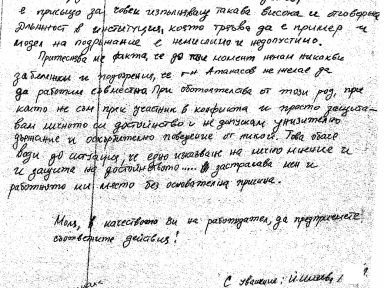 е присъщо за човек изпълняващ такава висока и отговорна
длъжност в институция, която трябва да е пример и
модел на подражание е немислимо и недопустимо.
Притеснява ме факта, че до този момент нямам никакви
забележки и подозрения, че г-н Атанасов не желае да
да работим съвместно. При обстоятелства от този род, при
които не съм пряк участник в конфликта и просто защита-
вам личното си достойнство и не допускам унизително
държание и оскърбително поведение от никого. Това обаче
води до ситуация, че едно изказване на лично мнение и
и защита на достойнството..... застрашава мен и
работното ми място без основателна причина.
Моля, в качеството Ви на работодател, да предприемете
съответните действия!
С уважение: